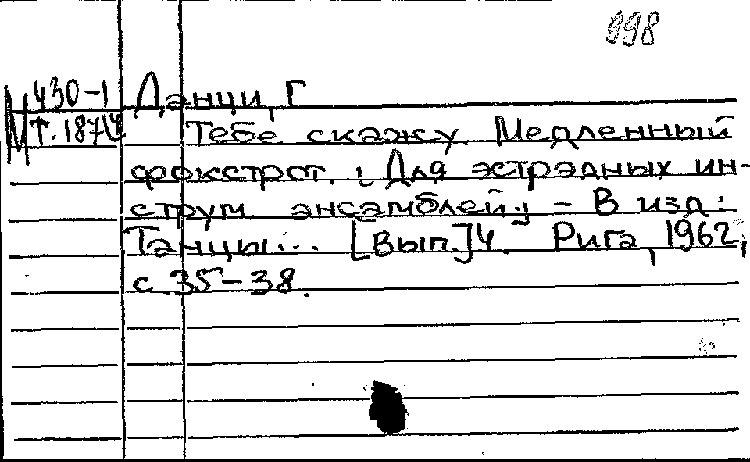 998
М 430-1 Данци, Г
Т. 187/4 Тебе скажу. Медленный
фокстрот. [Для эстрадных ин-
струм. ансамблей]. - В изд.:
Танцы... [Вып.]4. Рига, 1962,
с. 35-38.